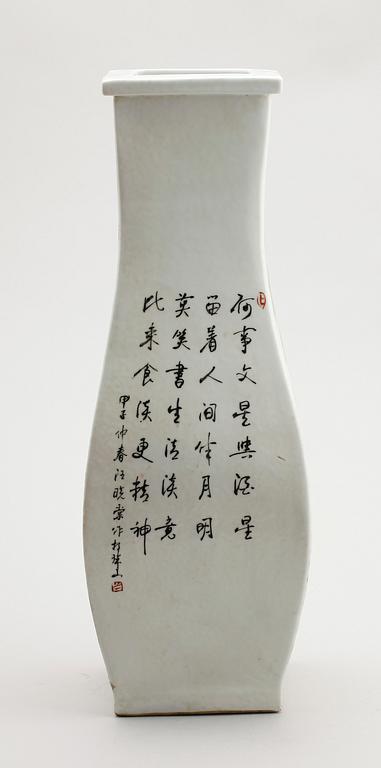 何事文星與酒星
留着人间伴月明
莫笑書生清淡意
比来食淡更精神
甲子仲春汪晓棠作於珠山